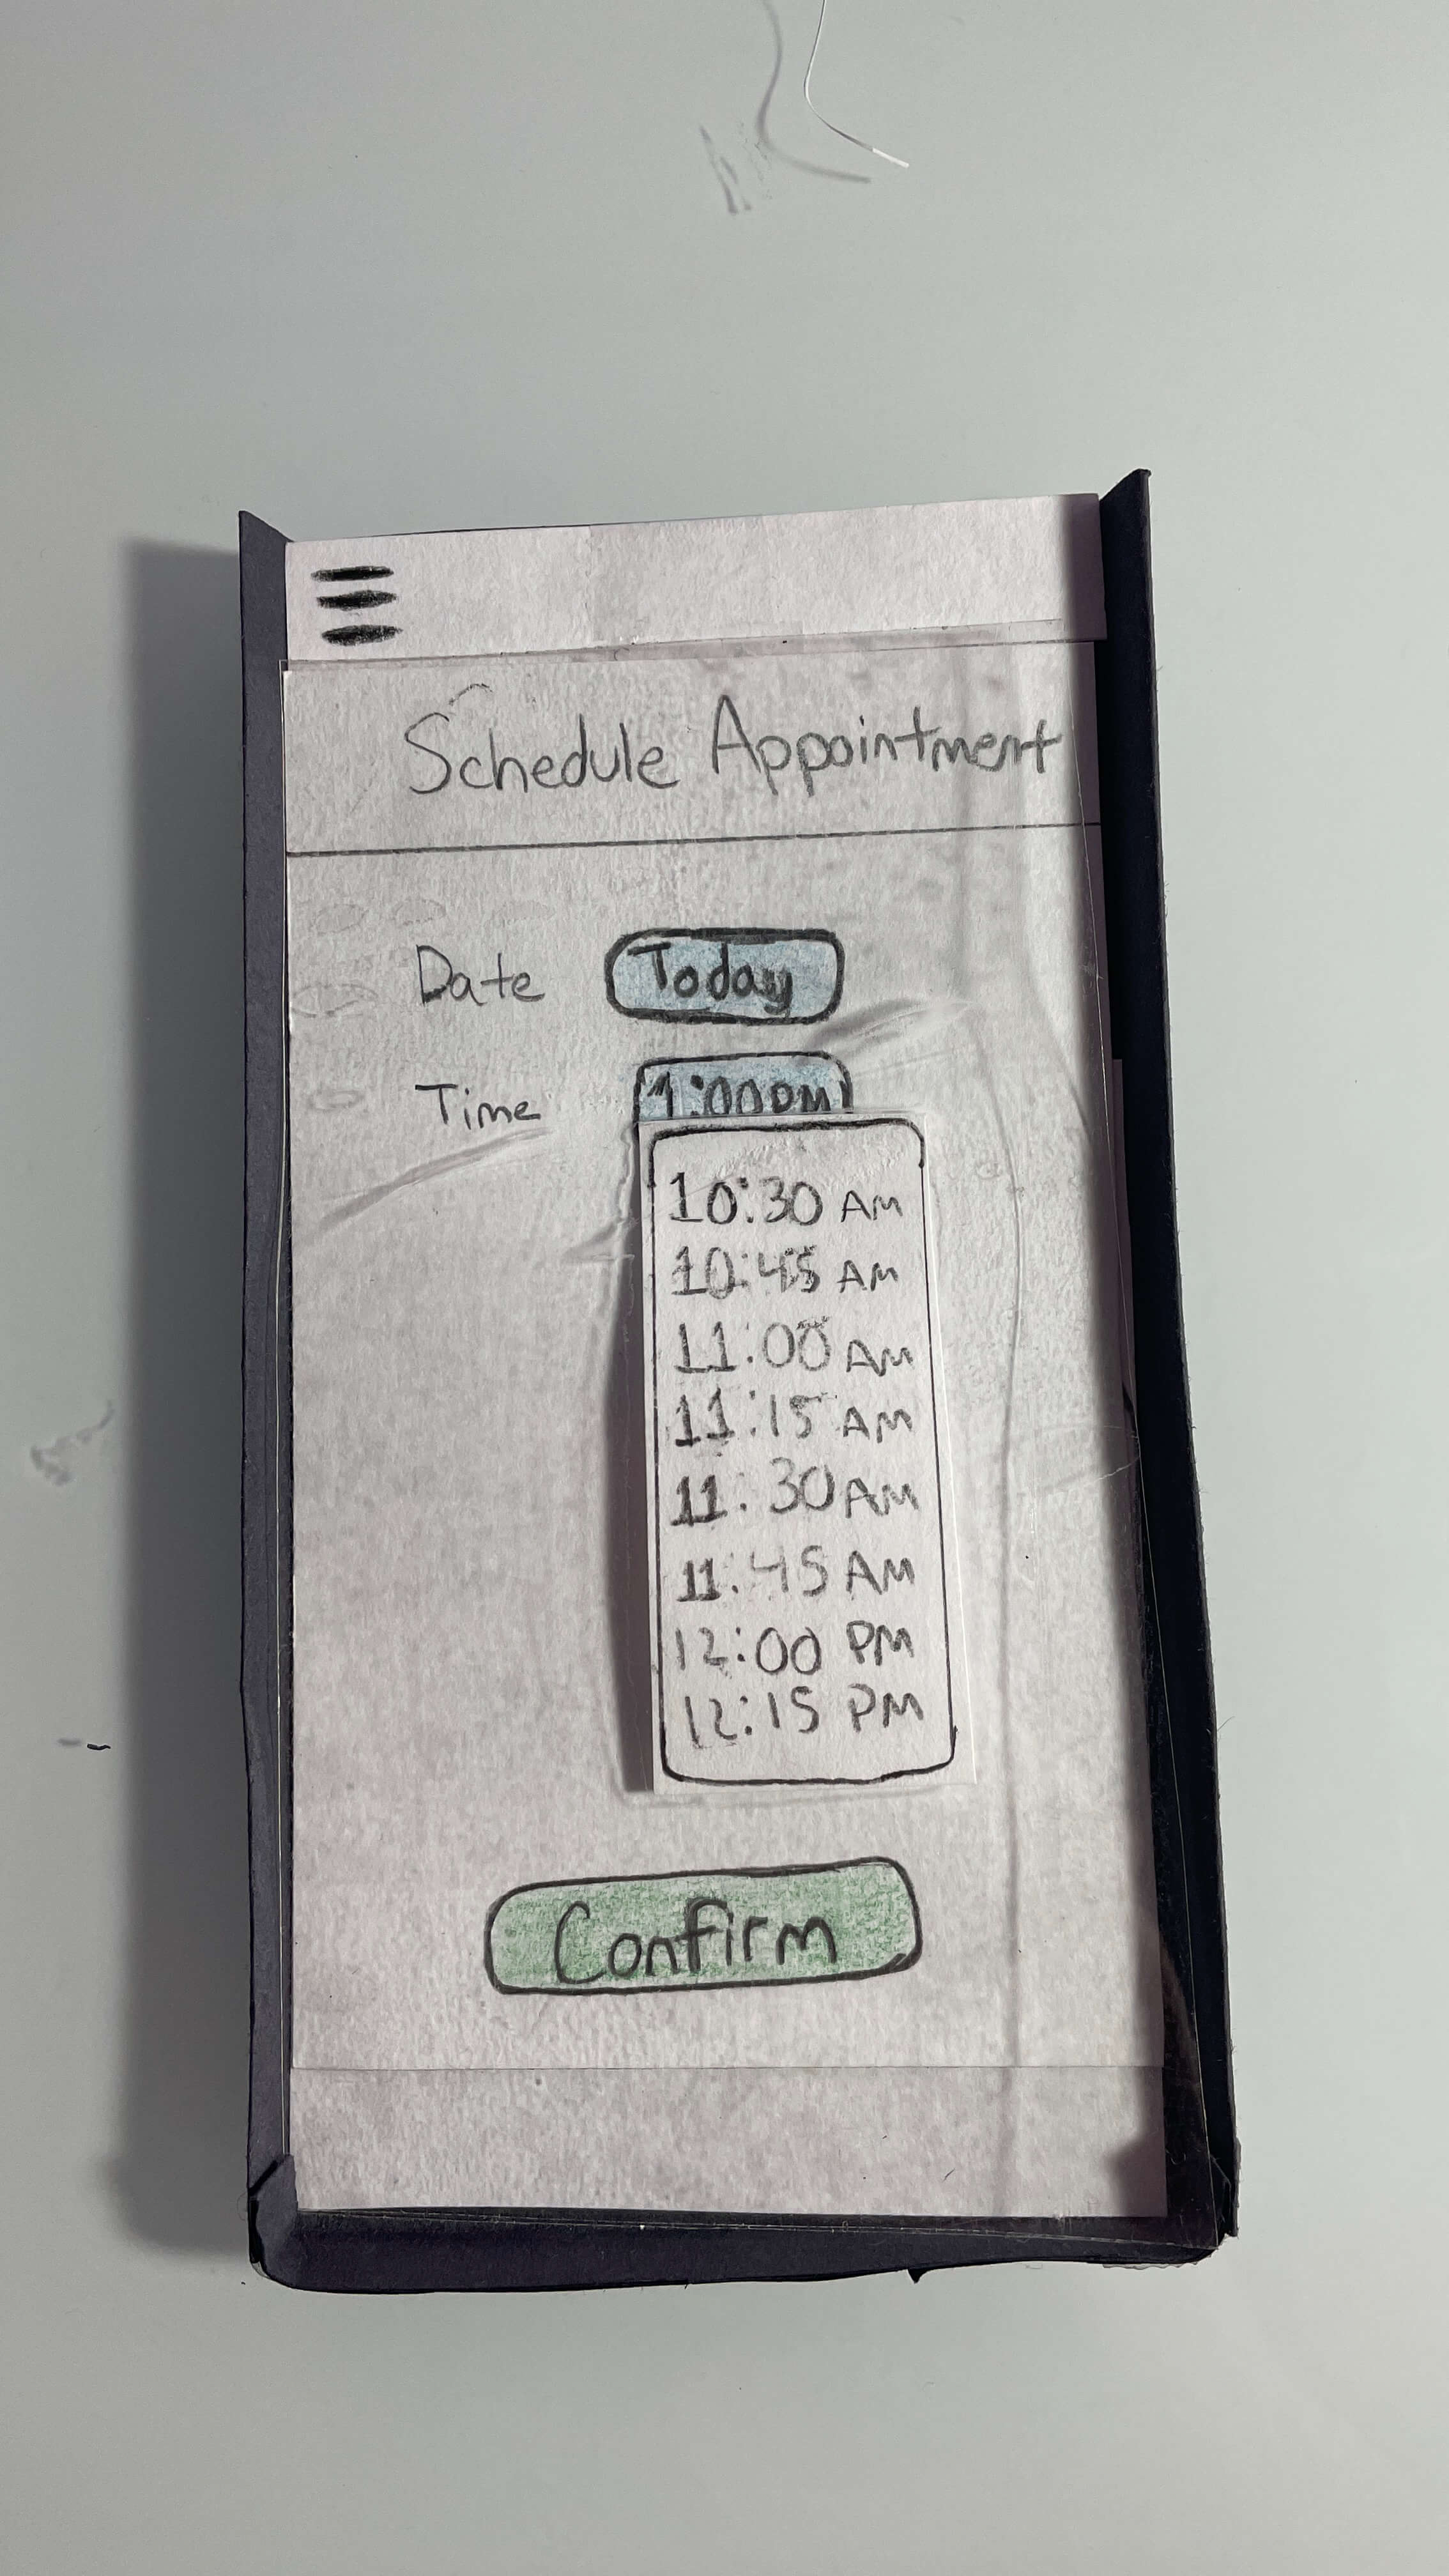 Schedule Appointment
Date Today
Time 1:00PM
10:30 AM
10:45 AM
11:00 AM
11:15 AM
11:30 AM
11:45 AM
12:00 PM
12:15 PM
Confirm